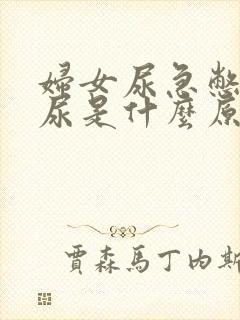 婦女尿急憋
尿是什麼原
賈森馬丁內斯